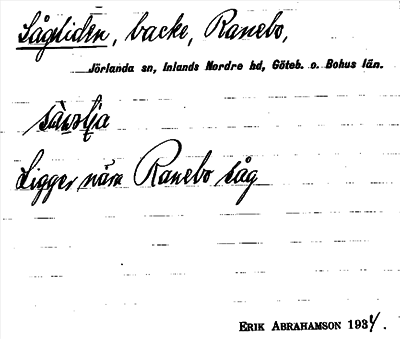 Sågliden, backe, Ranebo,
Jörlanda sn, Inlands Nordre hd, Göteb. o. Bohus län.
Ligger nära Ranebo såg
ERIK ABRAHAMSON 1934.